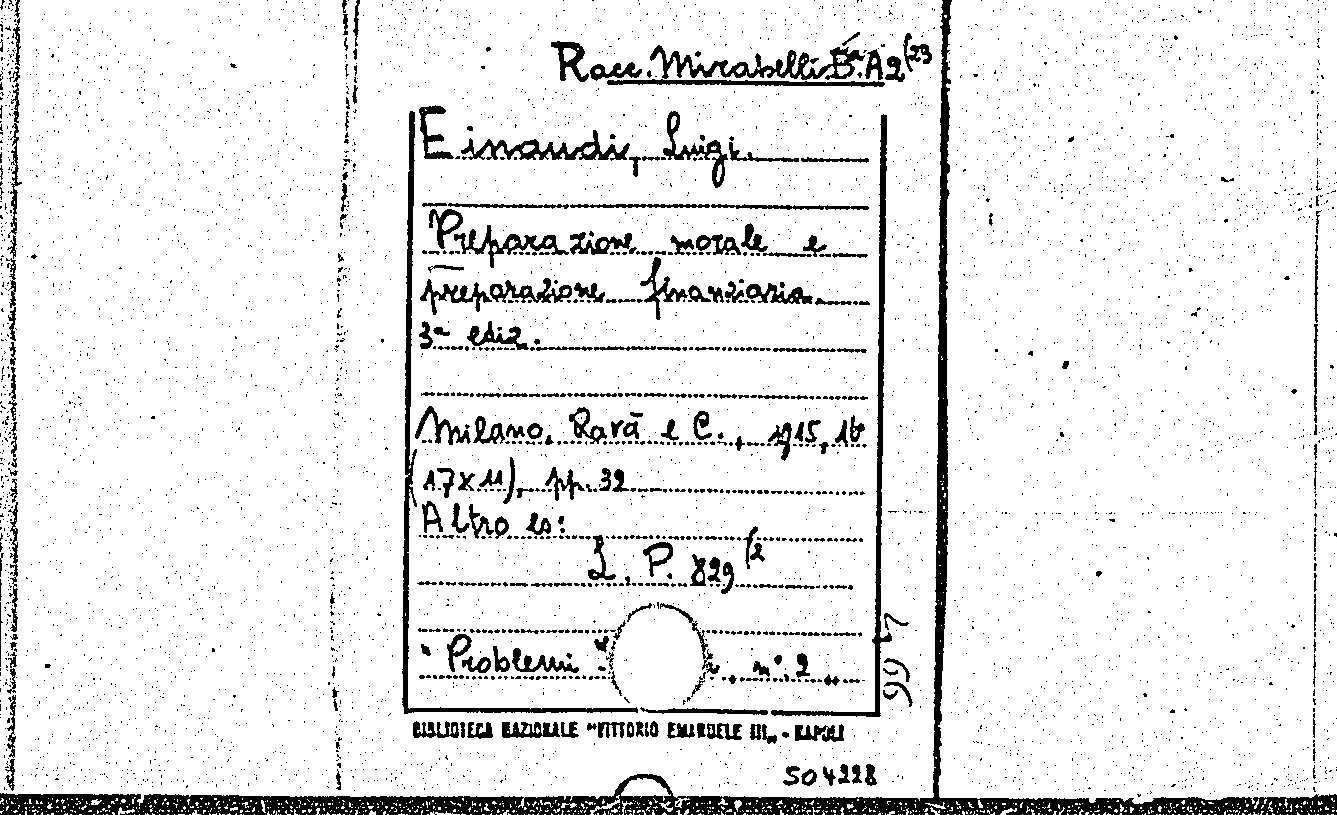 Racc. Mirabelli Bta. A2(23
Einaudi, Luigi.
Preparazione morale e
preparazione finanziaria.
3ª ediz.
Milano, Ravà e C., 1915, 16°
(17x11), pp. 32
Altro es:
L. P. 829(2
"Problemi n°. 2 "
BIBLIOTECA NAZIONALE "VITTORIO EMANUELE III„ - NAPOLI
504228